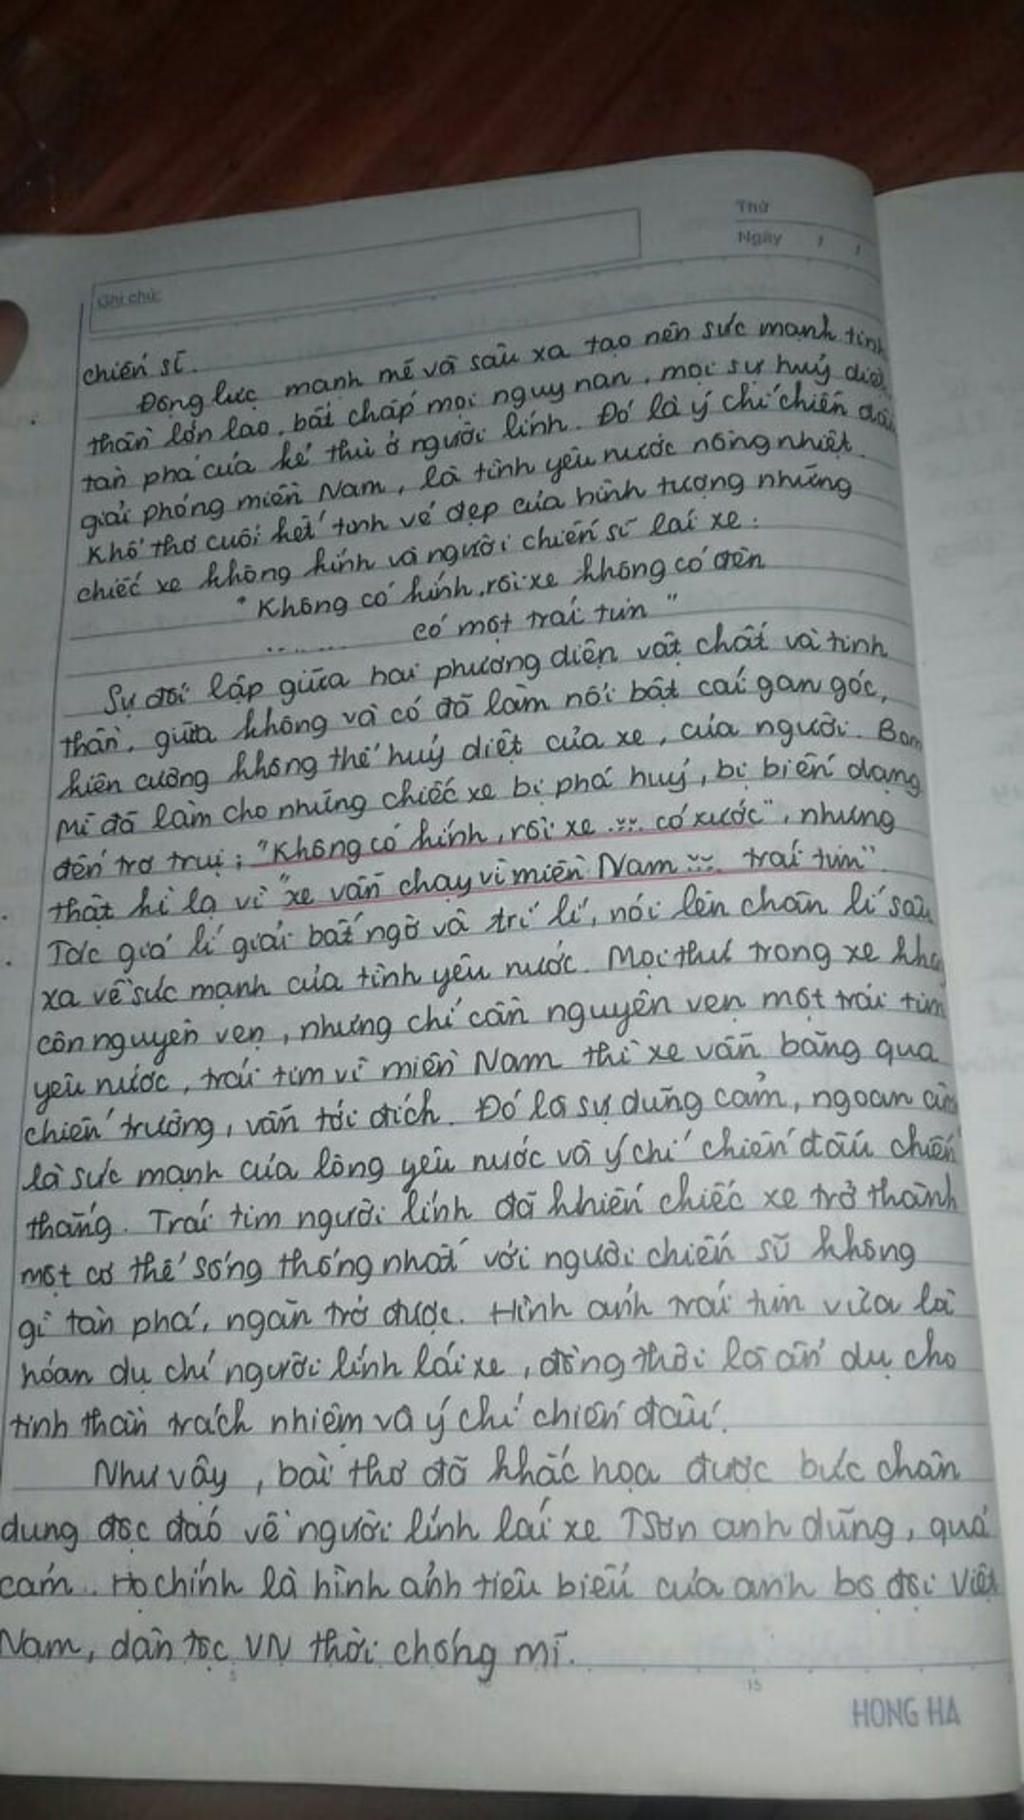 Thứ
Ngày / /
Ghi chú:
chiến sĩ.
Động lực mạnh mẽ và sâu xa tạo nên sức mạnh tinh
thần lớn lao, bất chấp mọi nguy nan, mọi sự huỷ diệt
tàn phá của kẻ thù ở người lính. Đó là ý chí chiến đấu
giải phóng miền Nam, là tình yêu nước nồng nhiệt.
Khổ thơ cuối kết tinh vẻ đẹp của hình tượng những
chiếc xe không kính và người chiến sĩ lái xe:
"Không có kính, rồi xe không có đèn
....... có một trái tim"
Sự đối lập giữa hai phương diện vật chất và tinh
thần, giữa không và có đã làm nổi bật cái gan góc,
kiên cường không thể huỷ diệt của xe, của người. Bom
Mĩ đã làm cho những chiếc xe bị phá huỷ, bị biến dạng
đến trơ trụi: "Không có kính, rồi xe ... có xước", nhưng
thật kì lạ vì "xe vẫn chạy vì miền Nam ... trái tim".
Tác giả lí giải bất ngờ và trí lí, nói lên chân lí sâu
xa về sức mạnh của tình yêu nước. Mọi thứ trong xe không
còn nguyên vẹn, nhưng chỉ cần nguyên vẹn một trái tim
yêu nước, trái tim vì miền Nam thì xe vẫn băng qua
chiến trường, vẫn tới đích. Đó là sự dũng cảm, ngoan
là sức mạnh của lòng yêu nước và ý chí chiến đấu chiến
thắng. Trái tim người lính đã khiến chiếc xe trở thành
một cơ thể sống thống nhất với người chiến sĩ không
gì tàn phá, ngăn trở được. Hình ảnh trái tim vừa là
hoán dụ chỉ người lính lái xe, đồng thời là ẩn dụ cho
tinh thần trách nhiệm và ý chí chiến đấu.
Như vậy, bài thơ đã khắc họa được bức chân
dung độc đáo về người lính lái xe TSơn anh dũng, quả
cảm. Họ chính là hình ảnh tiêu biểu của anh bộ đội Việt
Nam, dân tộc VN thời chống mĩ.
15
HONG HA